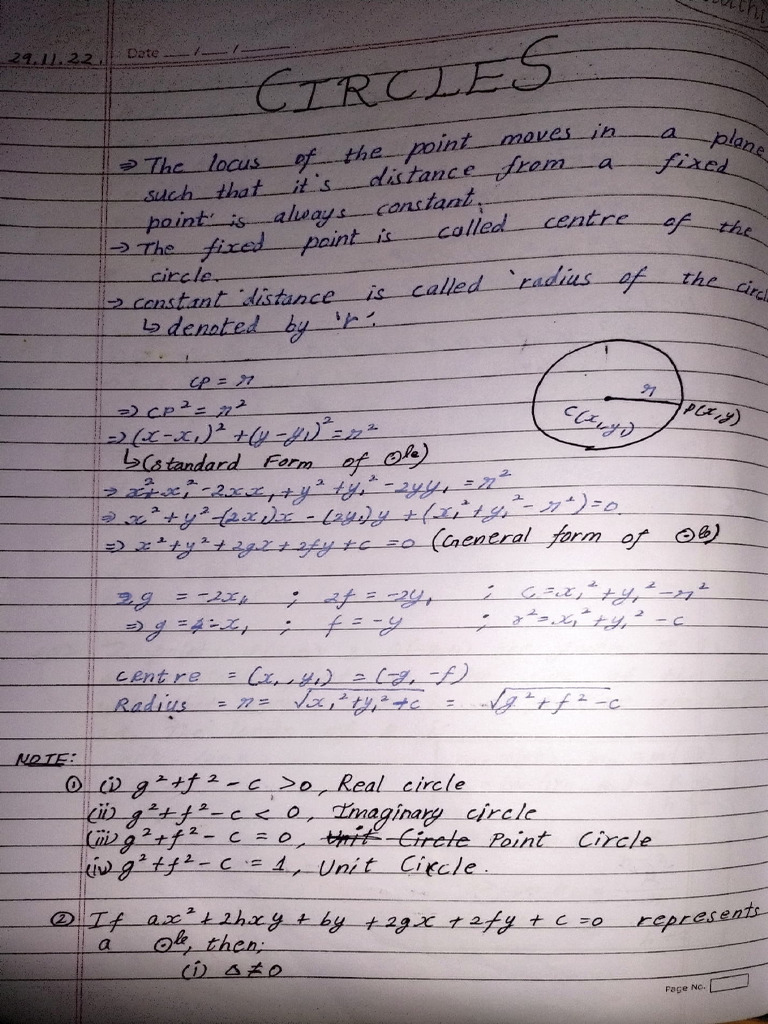 29.11.22.
Date __/__/____
CIRCLES
⇒ The locus of the point moves in a plane
such that it's distance from a fixed
point is always constant.
→ The fixed point is called centre of the
circle.
→ constant distance is called 'radius of the
↳ denoted by 'r'.
CP = r
⇒ CP² = r²
⇒ (x-x₁)² + (y-y₁)² = r²
↳ (Standard Form of ⊙le)
r
C(x₁,y₁)
P(x,y)
⇒ x²+x₁²-2xx₁+y²+y₁²-2yy₁ = r²
⇒ x²+y²-(2x₁)x-(2y₁)y+(x₁²+y₁²-r²)=0.
⇒ x²+y²+2gx+2fy+c=0 (General form of ⊙le)
2g = -2x₁ ; 2f = -2y₁ ; C=x₁²+y₁²-r²
⇒ g = -x₁ ; f = -y ; r²=x₁²+y₁²-c
Centre = (x₁,y₁) = (-g,-f)
Radius = r = √x₁²+y₁²+c = √g²+f²-c
NOTE:
① (i) g²+f²-c >0, Real circle
(ii) g²+f²-c < 0, Imaginary circle
(iii) g²+f²-c = 0, Unit Circle Point Circle
(iv) g²+f²-c = 1, Unit Circle.
② If ax²+2hxy+by+2gx+2fy+c=0 represents
a ⊙le, then;
(i) Δ≠0
Page No.